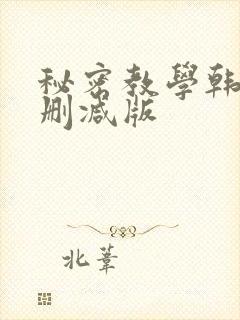 秘密教學韩
删减版
北葦